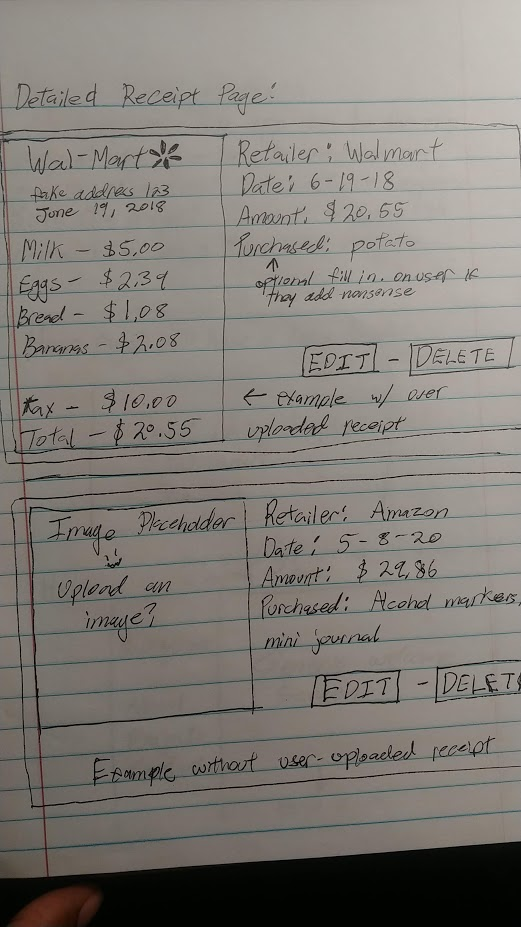 Detailed Receipt Page:
Wal-Mart
fake address 123
June 19, 2018
Milk - $5.00
Eggs - $2.39
Bread - $1.08
Bananas - $2.08
Tax - $10.00
Total - $20.55
Retailer: Walmart
Date: 6-19-18
Amount: $20.55
Purchased: potato
↑
optional fill in. on user if
they add nonsense
EDIT - DELETE
← example w/ over
uploaded receipt
Image Placeholder
Upload an
image?
Retailer: Amazon
Date: 5-8-20
Amount: $29.86
Purchased: Alcohol markers,
mini journal
EDIT - DELETE
Example without user-uploaded receipt